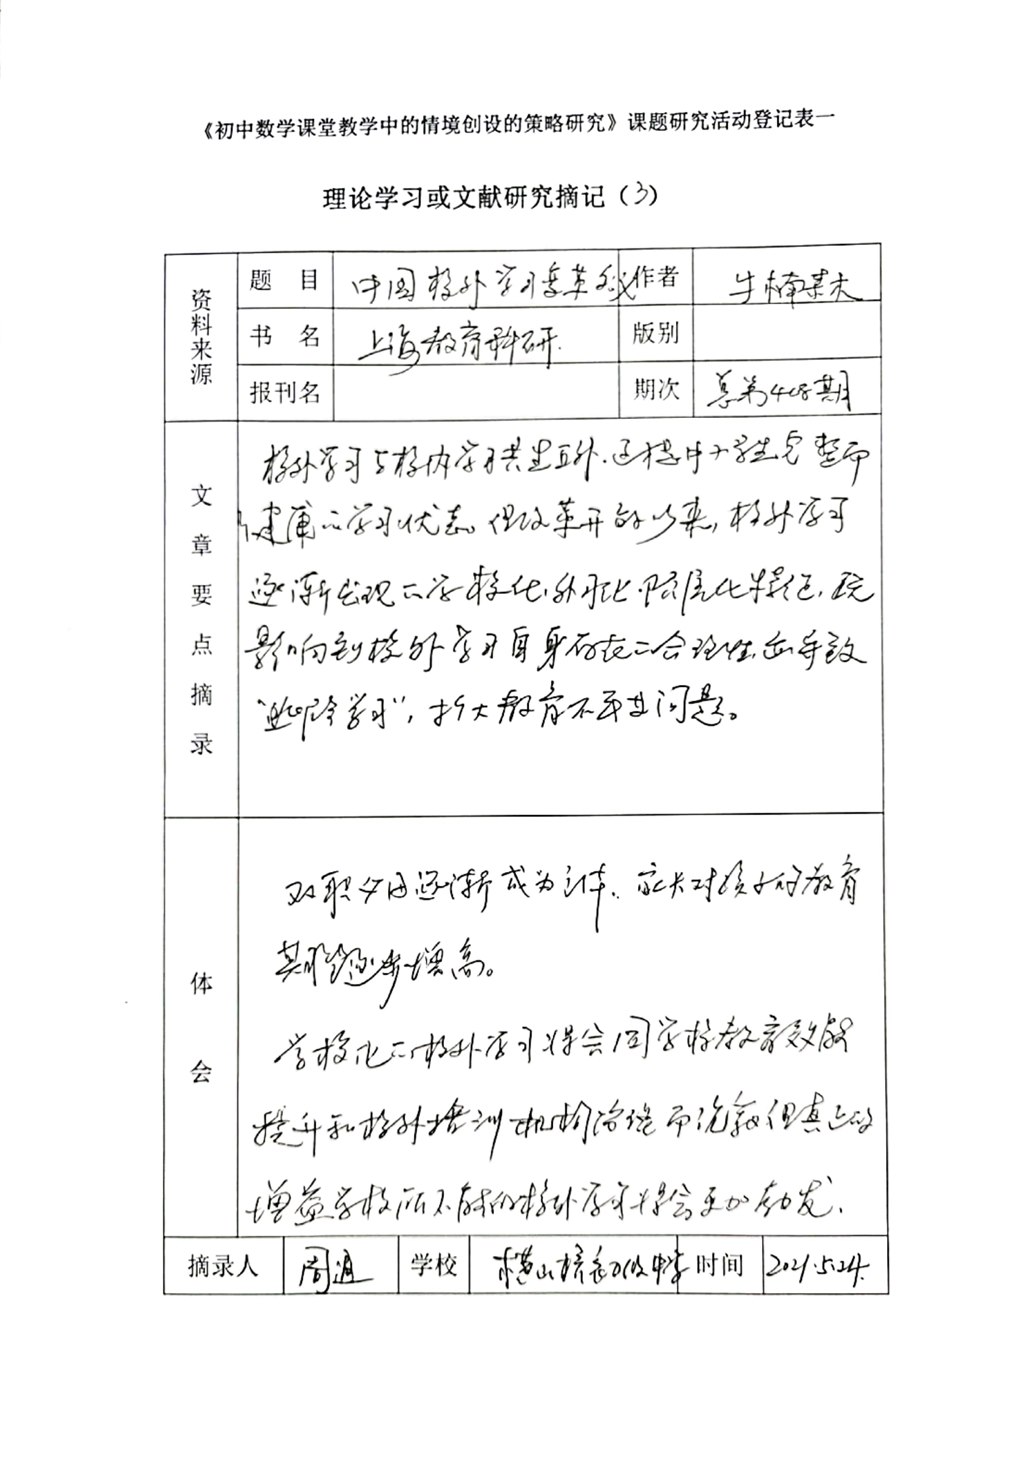 《初中数学课堂教学中的情境创设的策略研究》课题研究活动登记表一
理论学习或文献研究摘记（3）
资料来源
题 目 中国校外学习变革 作者 牛楠森
书 名 上海教育科研. 版别
报刊名 期次 总第408期
文章要点摘录
校外学习与校内学习共生互补.这是中小学生完整而
健康的学习状态。但改革开放以来,校外学习
逐渐出现的学校化.外形化.阶层化特征.既
影响到校外学习自身存在的合理性.也导致
“ 学习”,扩大教育不平等问题。
体会
双职 逐渐成为主体.家长对孩子的教育
期望逐步增高。
学校化的校外学习将会因学校教育效能
提升和校外培训机构治理而 但真正的
增益学校所不能的校外学习将会更加 发.
摘录人 周 学校 横山桥初级中学 时间 2021.5.24.